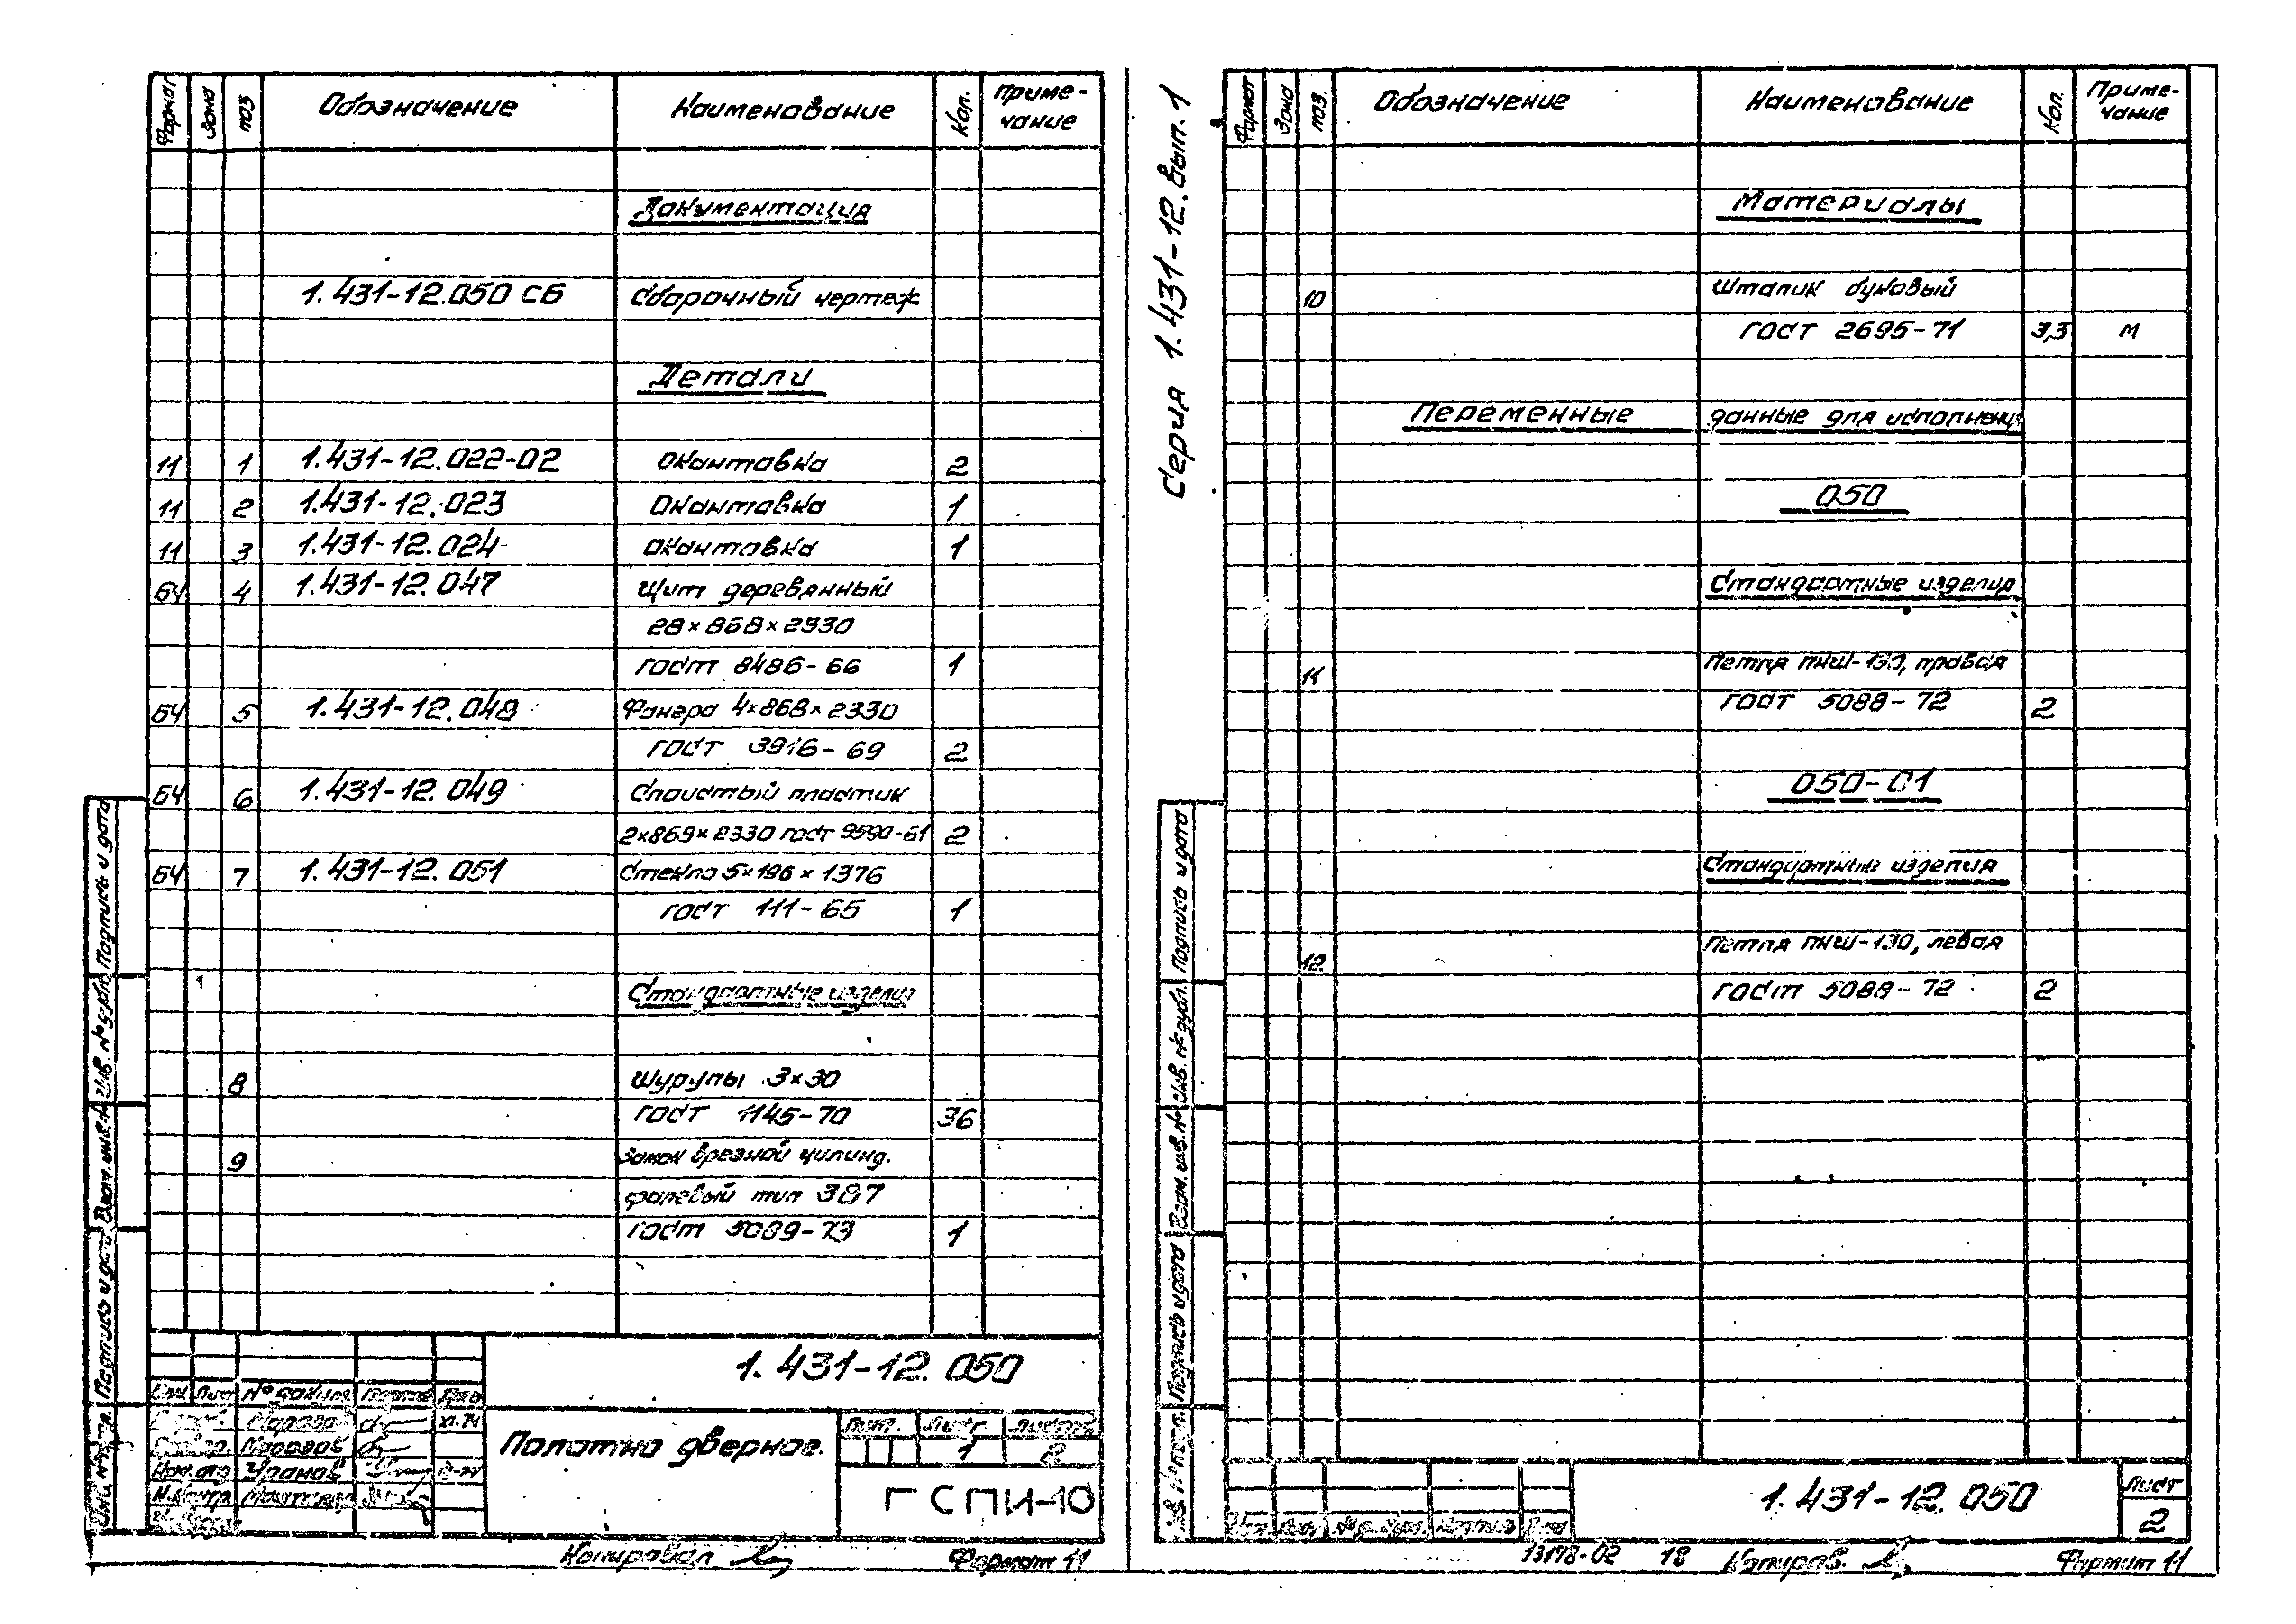 Формат Зона Поз Обозначение Наименование Кол. Приме-
чание
Документация
1.431-12.050 СБ Сборочный чертеж
Детали
11 1 1.431-12.022-02 Окантовка 2
11 2 1.431-12.023 Окантовка 1
11 3 1.431-12.024 Окантовка 1
БЧ 4 1.431-12.047 Щит деревянный
28×868×2330
ГОСТ 8486-66 1
БЧ 5 1.431-12.048 Фанера 4×868×2330
ГОСТ 3916-69 2
БЧ 6 1.431-12.049 Слоистый пластик
2×869×2330 ГОСТ 9590-61 2
БЧ 7 1.431-12.051 Стекло 5×196×1376
ГОСТ 111-65 1
Стандартные изделия
8 Шурупы 3×30
ГОСТ 1145-70 36
9 Замок врезной цилинд.
фалевый тип
ГОСТ 5089-73 1
Подпись и дата
Инв. № дубл.
Взам. инв. №
Подпись и дата
Инв. № подл.
1.431-12.050
Изм Лист № докум. Подпись Дата
XI.74
Нач. отд Уранов
Н.контр.
Полотно дверное.
Лит. Лист Листов
1 2
ГСПИ-10
Копировал
Формат 11
Серия 1.431-12. Вып. 1
Формат Зона Поз. Обозначение Наименование Кол. Приме-
чание
Материалы
10 Штапик буковый
ГОСТ 2695-71 3,3 м
Переменные данные для исполнений
050
Стандартные изделия
11 Петля ПНШ-130, правая
ГОСТ 5088-72 2
050-01
Стандартные изделия
12 Петля ПНШ-130, левая
ГОСТ 5088-72 2
Подпись и дата
Инв. № дубл.
Взам. инв. №
Подпись и дата
Инв. № подл.
Изм Лист № докум. Подпись Дата
1.431-12.050
Лист
2
13178-02 18 Копиров.
Формат 11